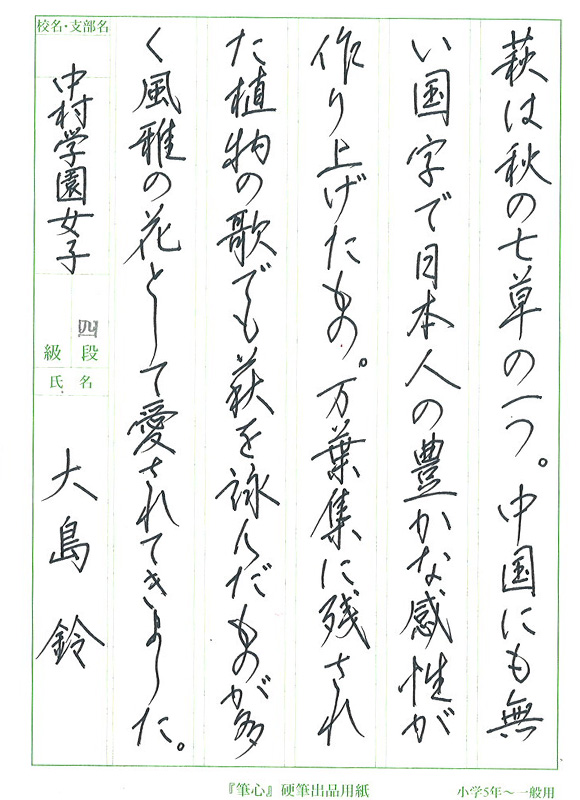 萩は秋の七草の一つ。中国にも無
い国字で日本人の豊かな感性が
作り上げたもの。万葉集に残され
た植物の歌でも萩を詠んだものが多
く風雅の花として愛されてきました。
校名・支部名
中村学園女子
四
級 段
氏 名
大島 鈴
『筆心』硬筆出品用紙
小学5年～一般用